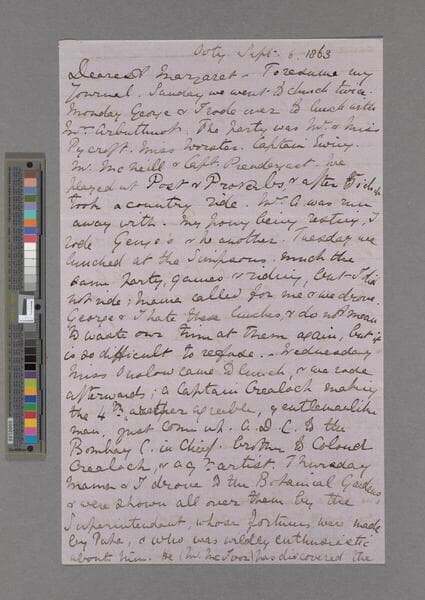 Ooty Sept. 6. 1863
Dearest Margaret - To resume my
Journal. Sunday we went to church twice.
Monday George & I rode over to lunch with
Mrs Arbuthnot. The party was Mr. & Miss
Pycroft. Miss Worster. Captain Ewing.
Mr. McNeill & Capt. Prendergast. We
played at Post & Proverbs, & after
took a country ride. Mrs A. was run
away with. My pony being resting, I
rode George's & he another. Tuesday we
lunched at the Simpsons. much the
same party, games & riding, but I did
not ride; Mama called for me & we drove.
George & I hate these lunches, & do not mean
to waste our time at them again, but it
is so difficult to refuse. - Wednesday
Miss Onslow came to lunch, & we rode
afterwards; a Captain Crealock making
the 4th. a rather agreeable, gentlemanlike
man, just come up. A. D. C. to the
Bombay C. in Chief. brother to Colonel
Crealock, & a gt. artist. Thursday
Mama & I drove to the Botanical Gardens
& were shown all over them by the
Superintendent, whose fortunes were made
by Papa, & who was wildly enthusiastic
about him. He (Mr. McIvor) has discovered the